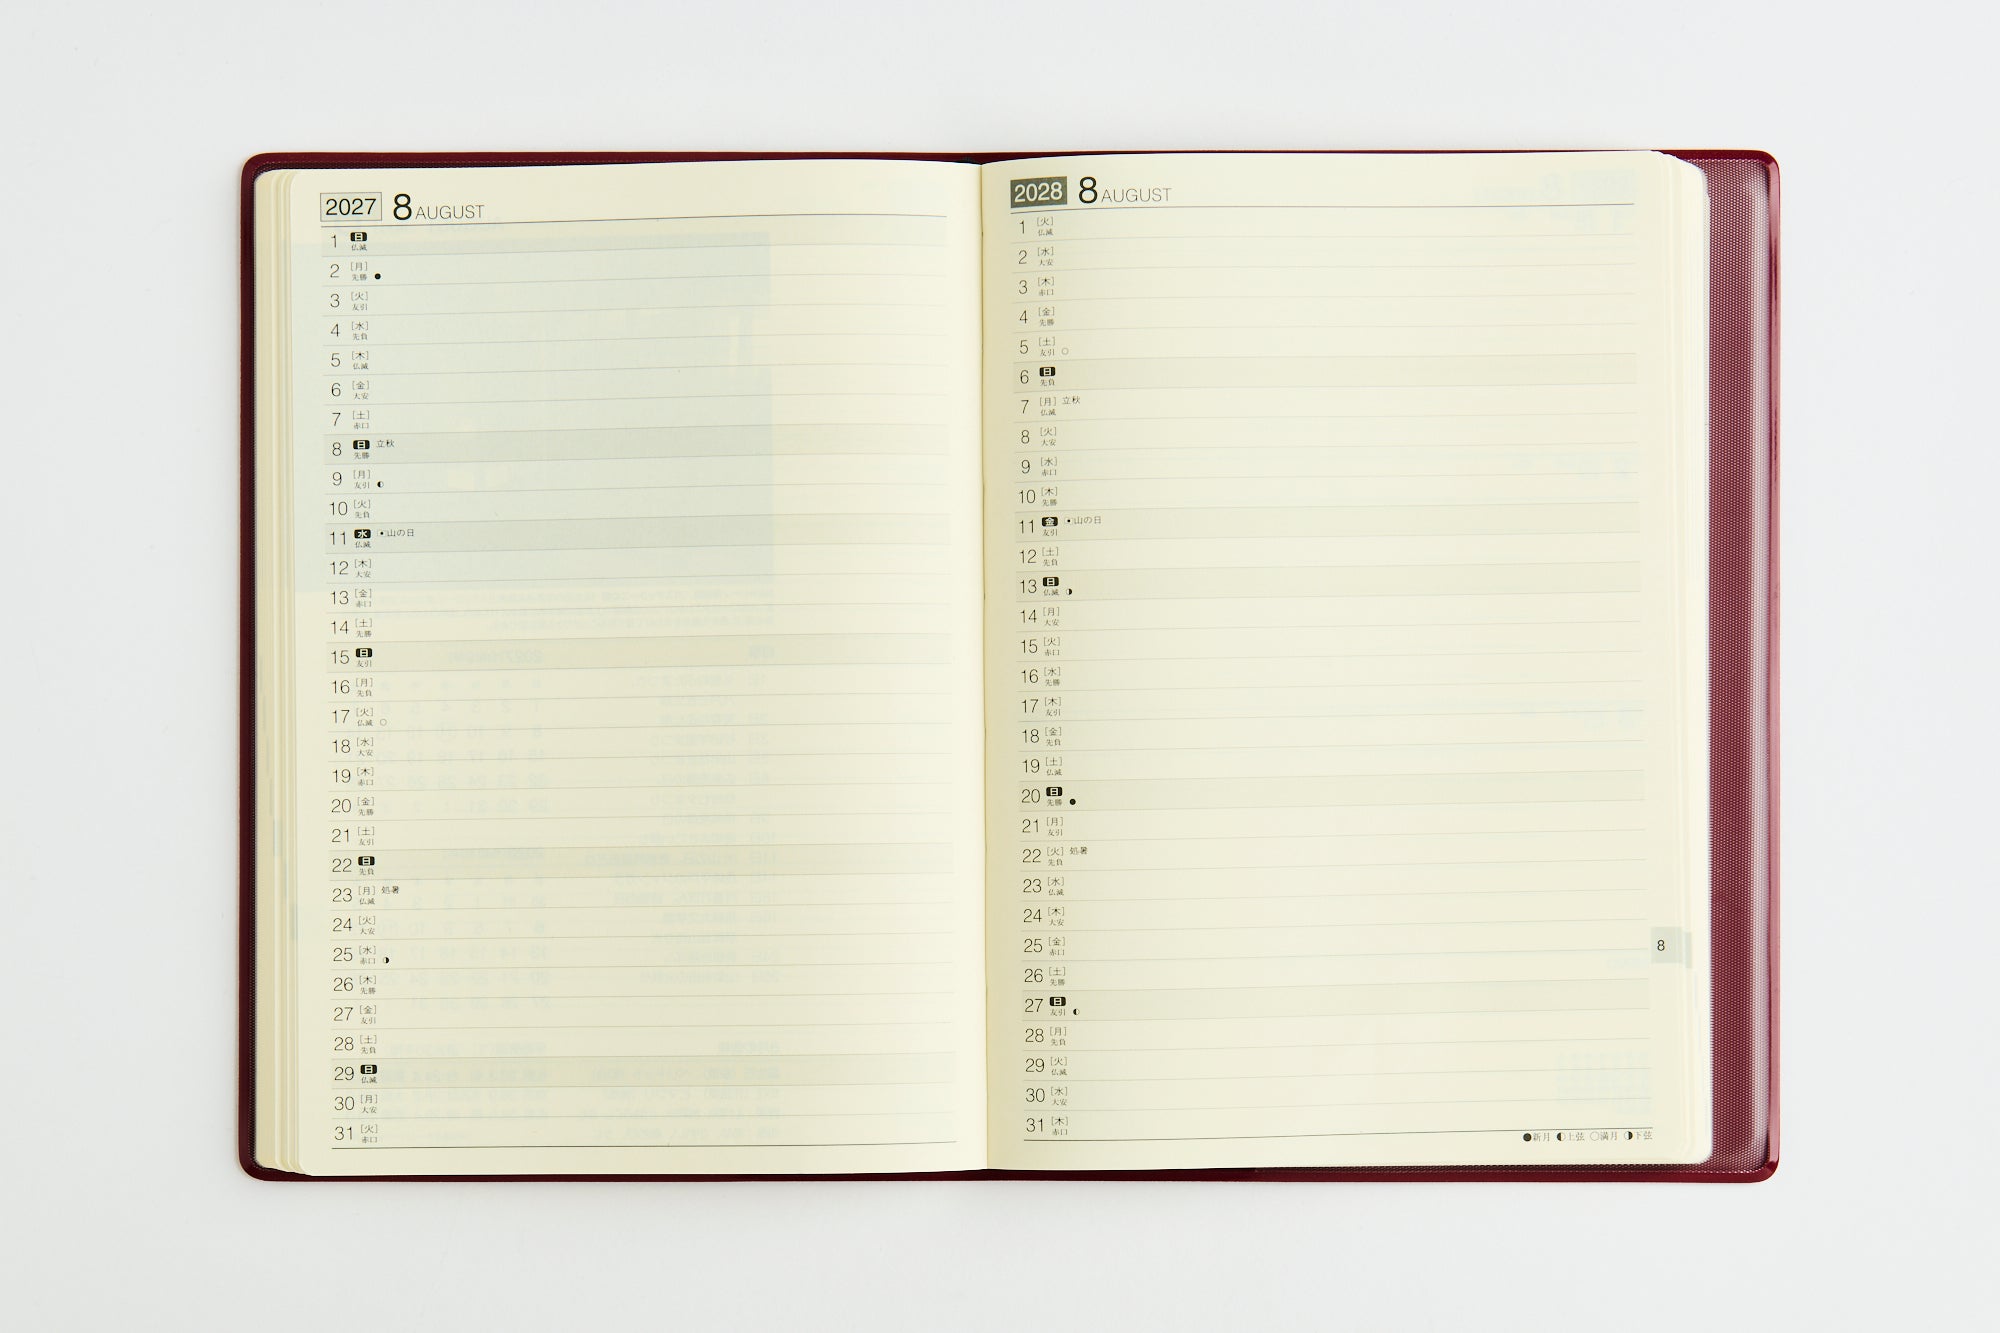 2027 8 AUGUST
1 日
仏滅
2 [月]
先勝 ●
3 [火]
友引
4 [水]
先負
5 [木]
仏滅
6 [金]
大安
7 [土]
赤口
8 日 立秋
先勝
9 [月]
友引 ◐
10 [火]
先負
11 水 ・山の日
仏滅
12 [木]
大安
13 [金]
赤口
14 [土]
先勝
15 日
友引
16 [月]
先負
17 [火]
仏滅 ○
18 [水]
大安
19 [木]
赤口
20 [金]
先勝
21 [土]
友引
22 日
先負
23 [月] 処暑
仏滅
24 [火]
大安
25 [水]
赤口 ◑
26 [木]
先勝
27 [金]
友引
28 [土]
先負
29 日
仏滅
30 [月]
大安
31 [火]
赤口
2028 8 AUGUST
1 [火]
仏滅
2 [水]
大安
3 [木]
赤口
4 [金]
先勝
5 [土]
友引 ○
6 日
先負
7 [月] 立秋
仏滅
8 [火]
大安
9 [水]
赤口
10 [木]
先勝
11 金 ・山の日
友引
12 [土]
先負
13 日
仏滅 ◑
14 [月]
大安
15 [火]
赤口
16 [水]
先勝
17 [木]
友引
18 [金]
先負
19 [土]
仏滅
20 日
先勝 ●
21 [月]
友引
22 [火] 処暑
先負
23 [水]
仏滅
24 [木]
大安
25 [金]
赤口
26 [土]
先勝
27 日
友引 ◐
28 [月]
先負
29 [火]
仏滅
30 [水]
大安
31 [木]
赤口
●新月 ◐上弦 ○満月 ◑下弦
8